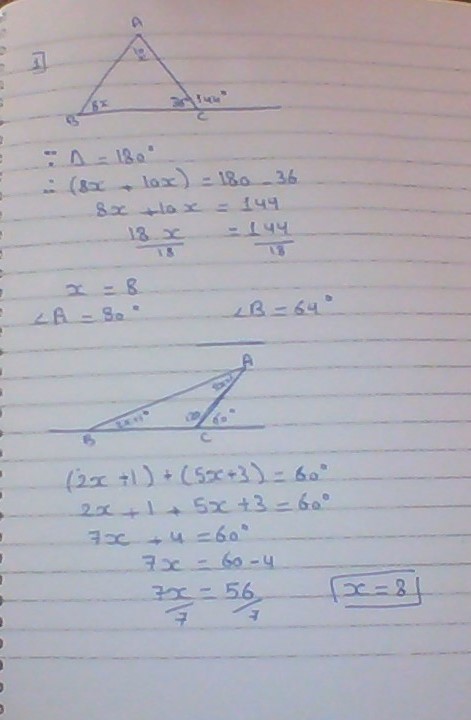 1]
A
10x
8x
36° 144°
B
C
∵ Δ = 180°
∴ (8x + 10x) = 180 - 36
8x + 10x = 144
18 x = 144
18 18
x = 8
∠A = 80° ∠B = 64°
A
2x+1°
60°
B
C
(2x + 1) + (5x+3) = 60°
2x + 1 + 5x + 3 = 60°
7x + 4 = 60°
7x = 60 - 4
7x = 56
7 7
x = 8